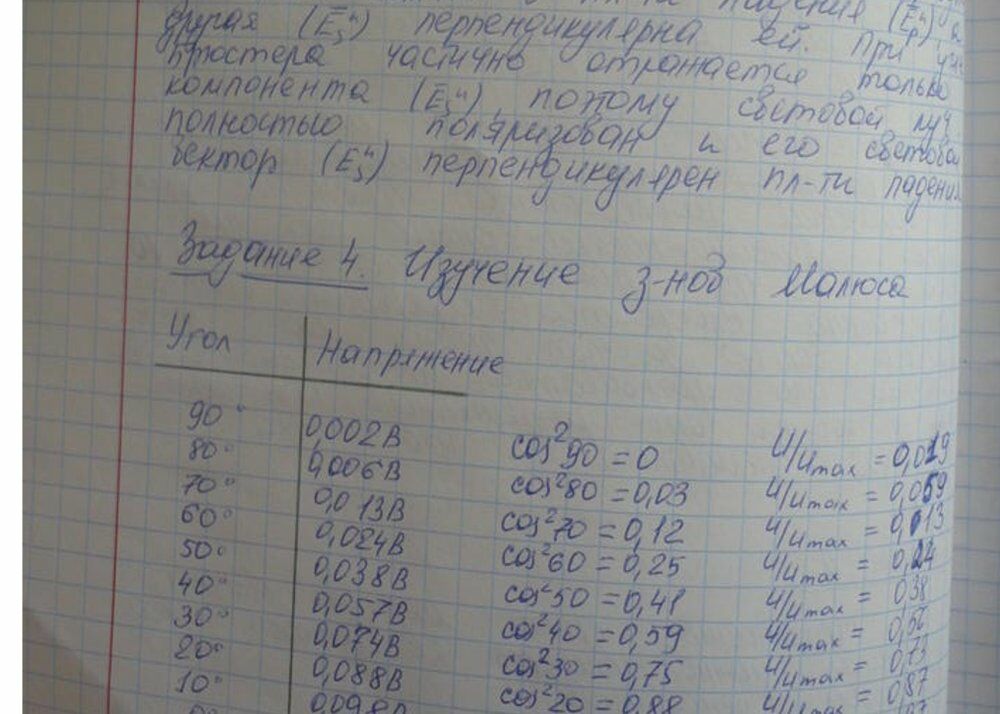 другая (E₅ᶥᶥ) перпендикулярна ей. При
простера частично отражается только
компонента (E₅ᶥᶥ), поэтому световой луч
полностью поляризован и его световой
вектор (E₅ᶥᶥ) перпендикулярен пл-ти падения
Задание 4. Изучение з-нов Малюса
Угол Напряжение
90° 0,002В cos²90 = 0 U/Umax = 0,019
80° 0,006В cos²80 = 0,03 U/Umax = 0,059
70° 0,013В cos²70 = 0,12 U/Umax = 0,13
60° 0,024В cos²60 = 0,25 U/Umax = 0,24
50° 0,038В cos²50 = 0,41 U/Umax = 0,38
40° 0,057В cos²40 = 0,59 U/Umax = 0,56
30° 0,074В cos²30 = 0,75 U/Umax = 0,73
20° 0,088В cos²20 = 0,88 U/Umax = 0,87
10° 0,098В